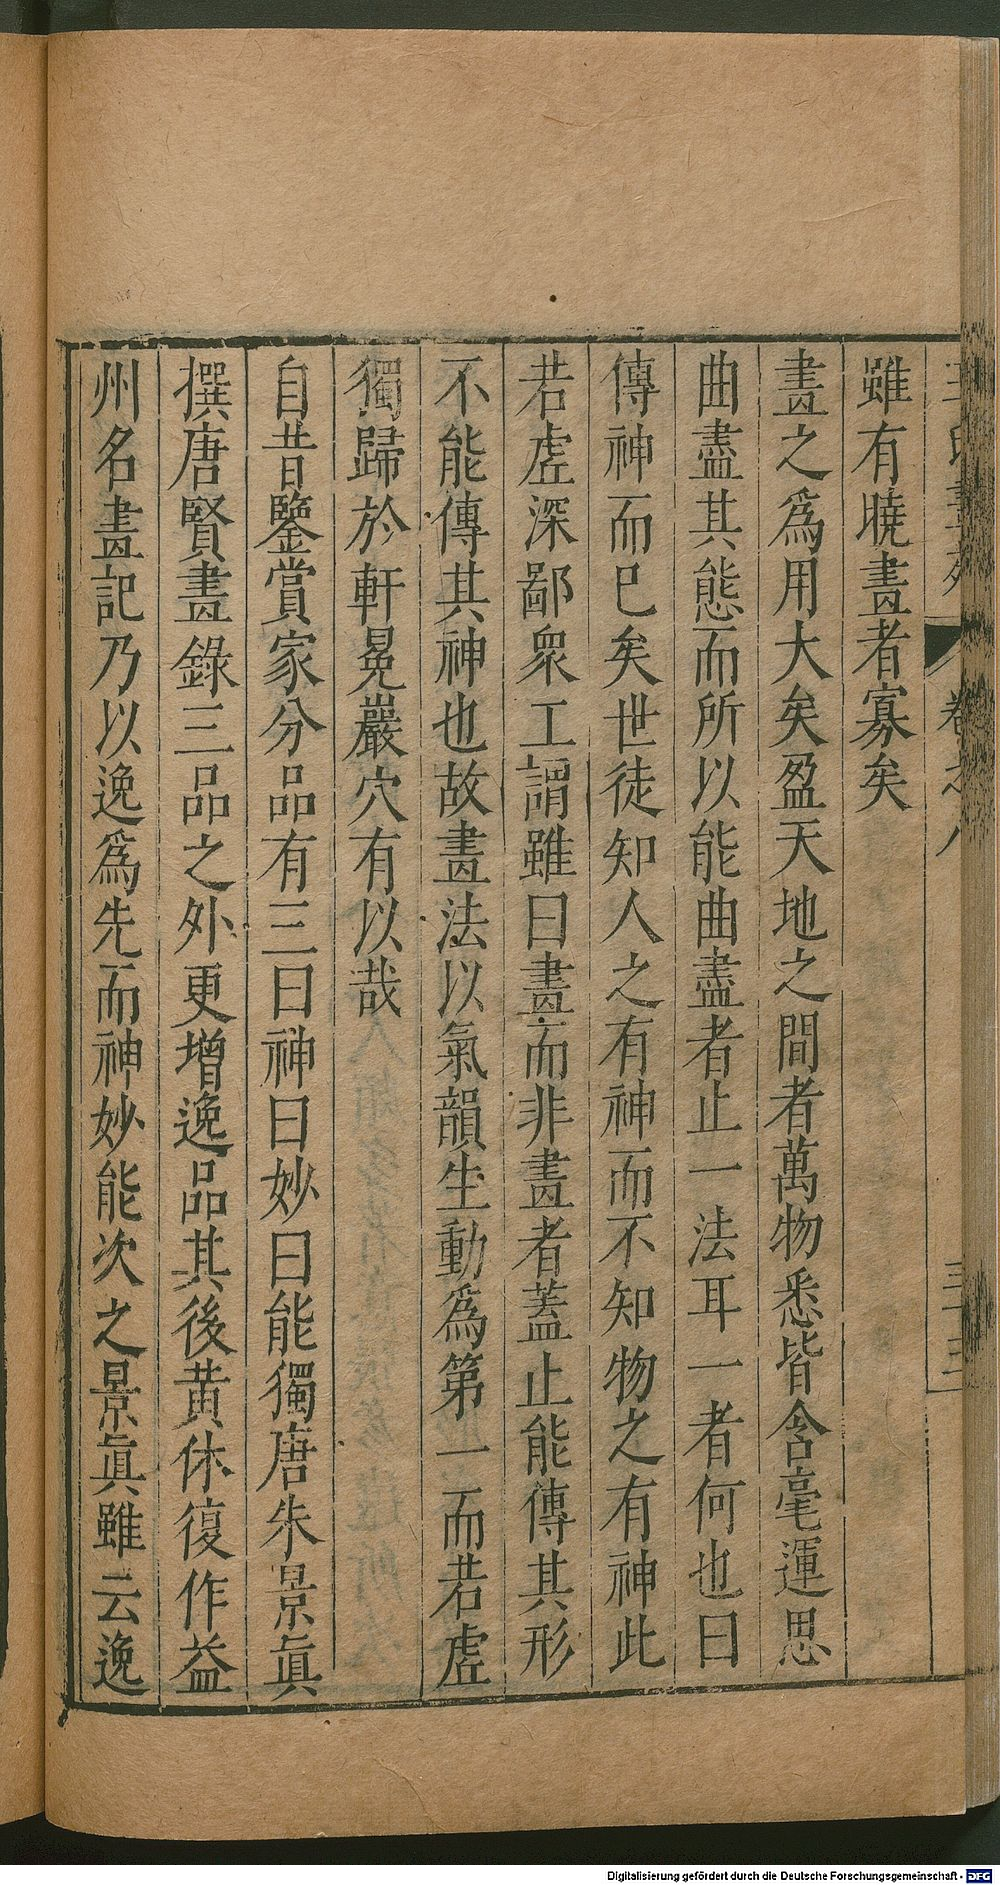 雖有曉畫者寡矣
畫之爲用大矣盈天地之間者萬物悉皆含毫運思
曲盡其態而所以能曲盡者止一法耳一者何也曰
傳神而巳矣世徒知人之有神而不知物之有神此
若虛深鄙衆工謂雖曰畫而非畫者蓋止能傳其形
不能傳其神也故畫法以氣韻生動爲第一而若虛
獨歸於軒冕巖穴有以哉
自昔鑒賞家分品有三曰神曰妙曰能獨唐朱景眞
撰唐賢畫錄三品之外更增逸品其後黄休復作益
州名畫記乃以逸爲先而神妙能次之景眞雖云逸
卷之八
三十三
Digitalisierung gefördert durch die Deutsche Forschungsgemeinschaft - DFG